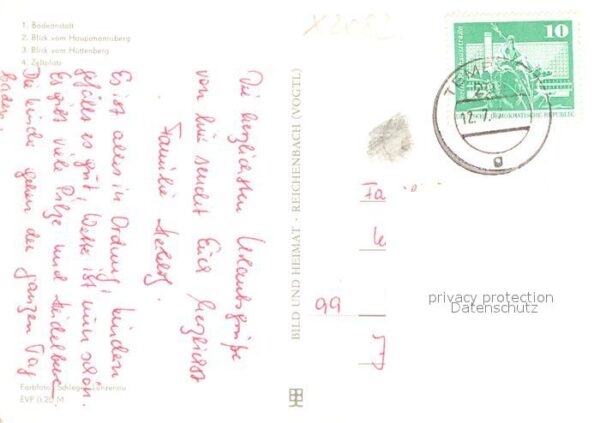 1. Badeanstalt
2. Blick vom Hauptmannsberg
3. Blick vom Hüttenberg
4. Zeltplatz
Die herzlichsten Urlaubsgrüße
von hier sendet Euch herzlichst
Familie
Es ist alles in Ordnung! Kindern
gefällt es gut, Wetter ist nun schön.
Es gibt viele Pilze und Heidelbeer.
Die Kinder gehen den ganzen Tag
baden.
Farbfoto: Schlegel,
EVP 0,20 M
BILD UND HEIMAT · REICHENBACH (VOGTL)
10
DEUTSCHE DEMOKRATISCHE REPUBLIK
12.7.
a
Fa
99
privacy protection
Datenschutz